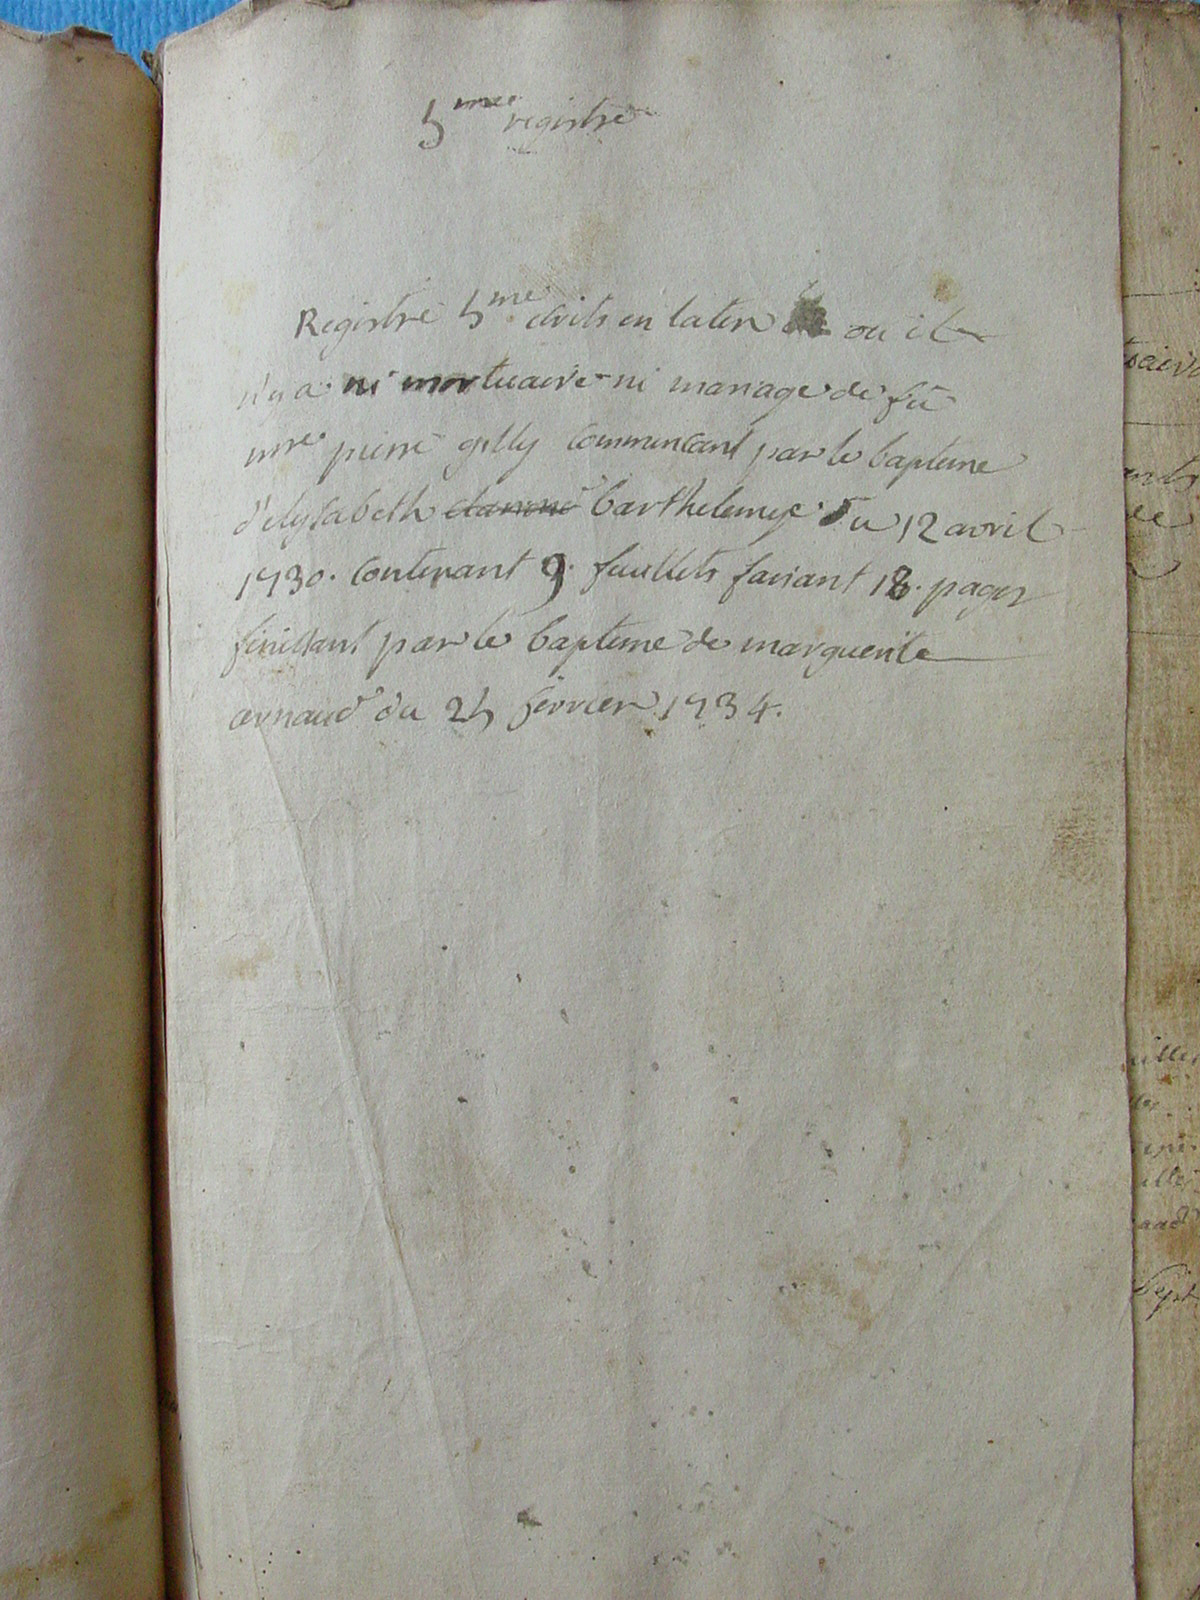 5me registre
Registre 5me ecrits en laten ou il
n'y a ni mortuaire ni mariage de fû
mre pierre gilly commencant par le bapteme
d'elysabeth barthelemye du 12 avril
1730. contenant 9. feuillets faisant 18. pages
finissant par le bapteme de marguerite
arnaud du 25 fevrier 1734.